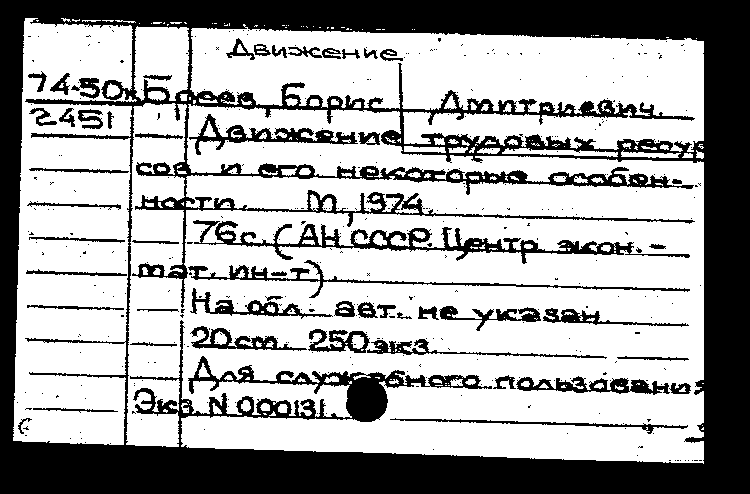 Движение
74-50к Бреев, Борис Дмитриевич.
2451 Движение трудовых ресур
сов и его некоторые особен-
ности. М, 1974.
76с. (АН СССР. Центр экон.-
мат. ин-т).
На обл. авт. не указан.
20см. 250экз.
Для служебного пользования
Экз. N 000131.